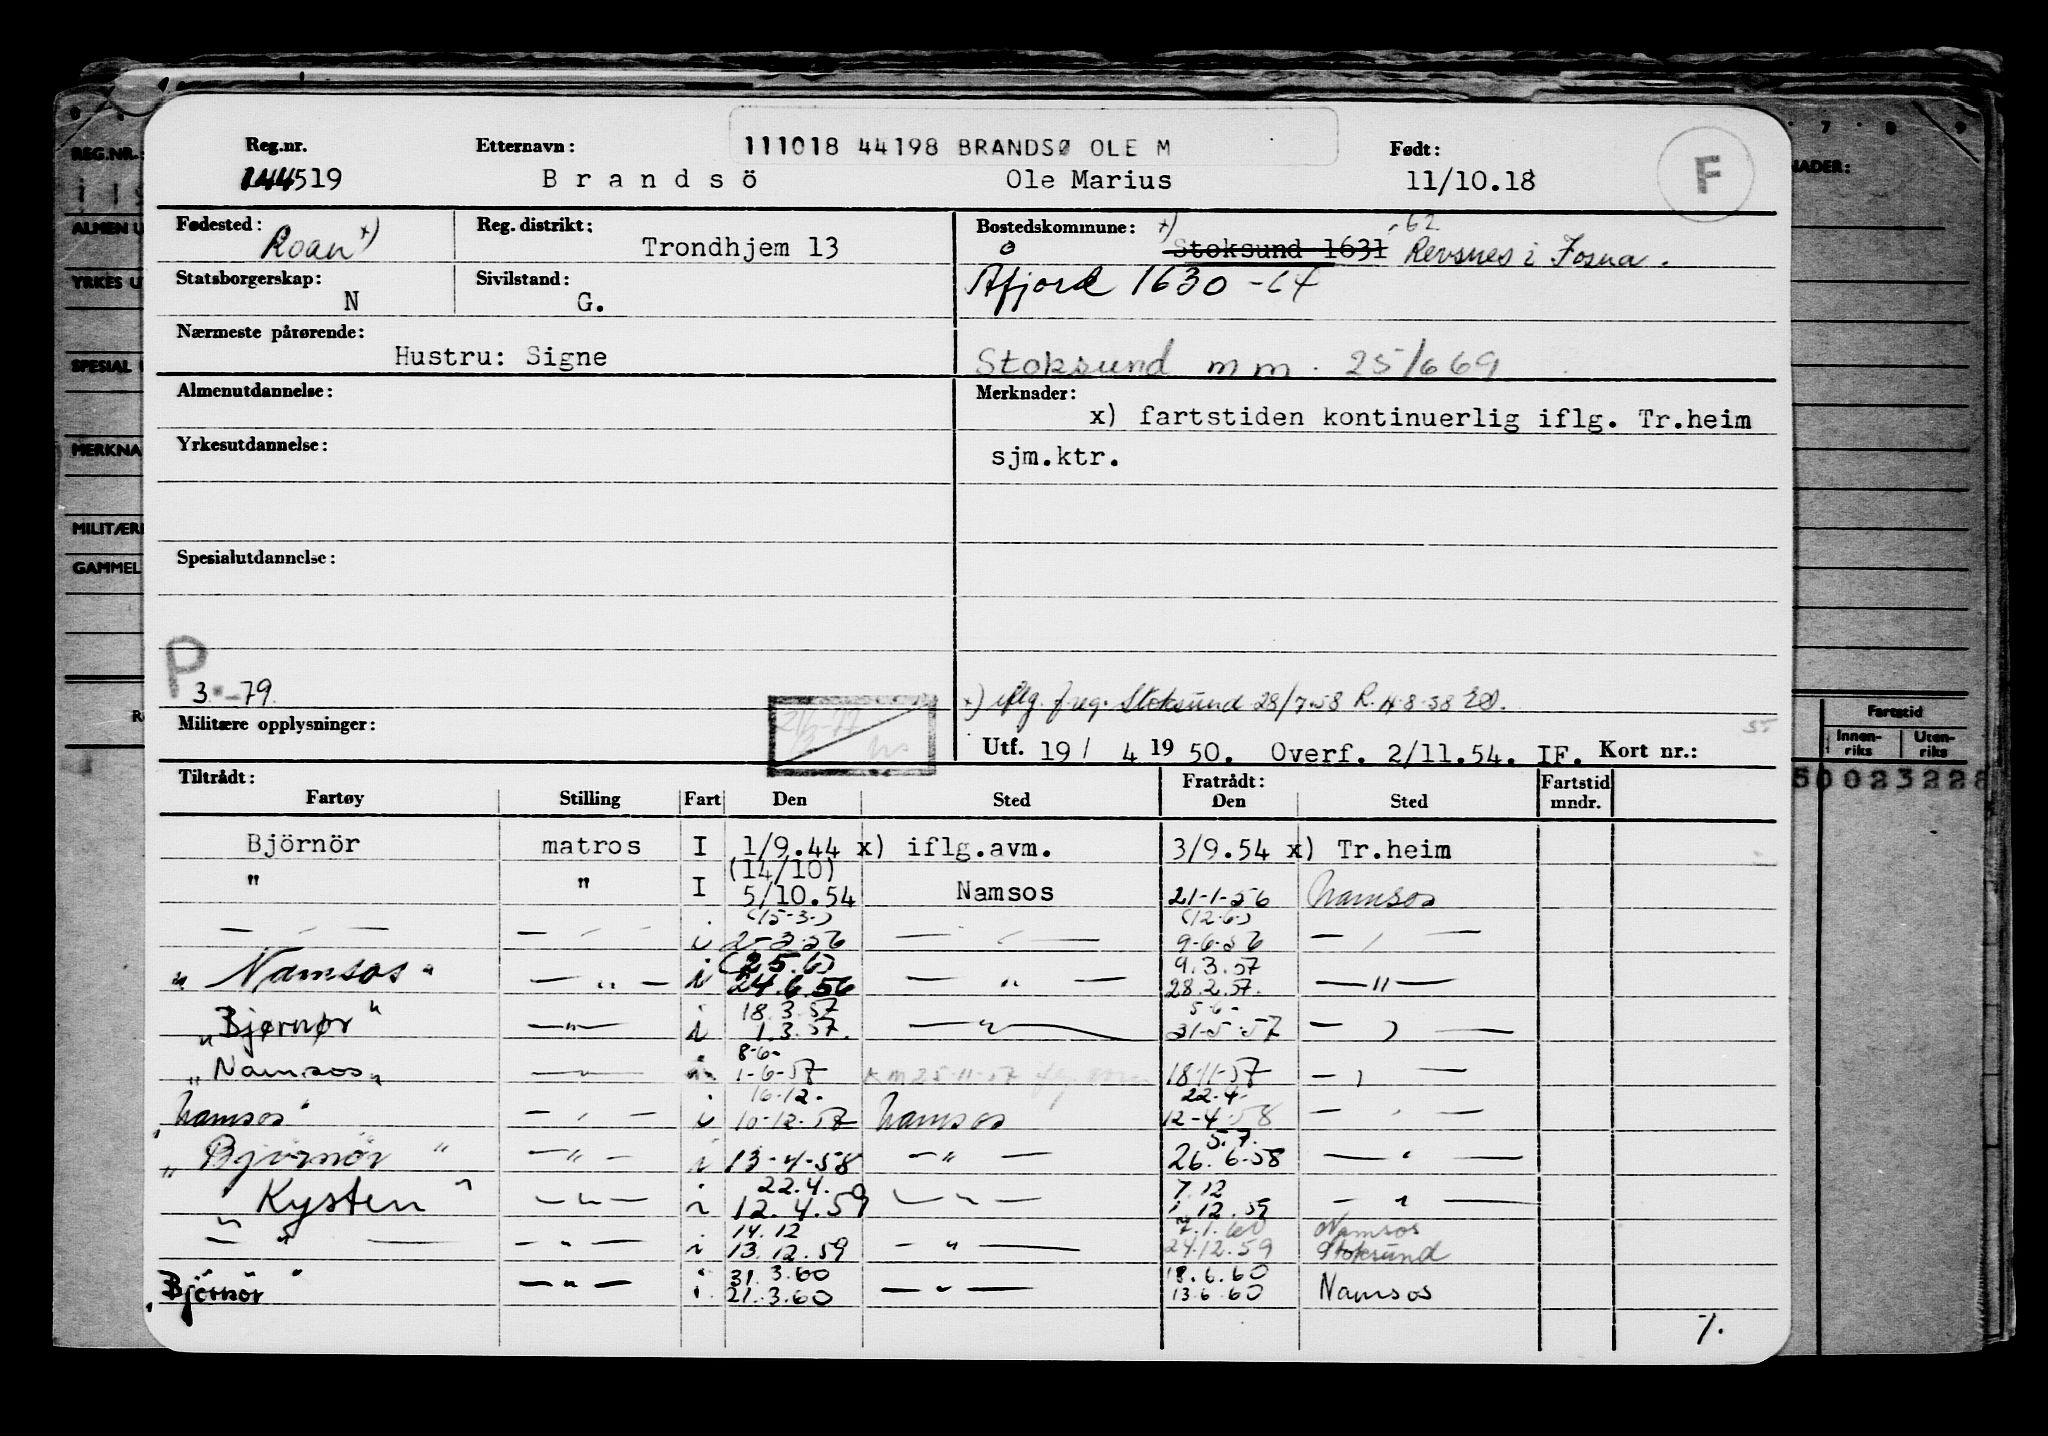 111018 44198 BRANDSØ OLE M
Reg.nr. Etternavn: Født:
144519 Brandsö Ole Marius 11/10.18 F
Fødested: Roan x) Reg. distrikt: Trondhjem 13 Bostedskommune: x) Stoksund 1631 -62 Revsnes i Fosna.
Statsborgerskap: N Sivilstand: G. Åfjord 1630 -64
Nærmeste pårørende: Hustru: Signe Stoksund mm. 25/6 69
Almenutdannelse: Merknader:
x) fartstiden kontinuerlig iflg. Tr.heim
Yrkesutdannelse: sjm.ktr.
Spesialutdannelse:
P
3.-79.
x) iflg. f reg. Stoksund 28/7-58 R. 4-8-58
Militære opplysninger:
Utf. 19/ 4 19 50. Overf. 2/11.54. IF. Kort nr.:
Tiltrådt: Fratrådt: Fartstid
Fartøy Stilling Fart Den Sted Den Sted mndr.
Björnör matros I 1/9.44 x) iflg.avm. 3/9.54 x) Tr.heim
(14/10)
" " I 5/10.54 Namsos 21-1-56 Namsos
(15-3-) (12-6-)
— " — — " — i 2-3-56 — " — 9-6-56 — " —
(25.6) 9.3.57
"Namsos" — " — i 24.6.56 — " — 28.2.57. — " —
18.3.57 5-6-
"Bjørnør" — " — i 1.3.57. — " — 31-5-57 — " —
8-6-
"Namsos" — " — 1-6-57 KM 25-11-57 18-11-57 — " —
16-12- 22-4-
"Namsos" — " — i 10-12-57 Namsos 12-4-58 — " —
5.7.
"Björnör" — " — i 13-4-58 — " — 26.6-58 — " —
22.4. 7.12
"Kysten" — " — i 12.4.59 — " — 1.12.59 — " —
14.12 7.1.60 Namsos
— " — — " — i 13.12.59 — " — 24.12.59 Stoksund
31.3.60 18.6.60
"Björnör" — " — i 21.3.60 — " — 13.6.60 Namsos
REG.NR.:
ALMEN U
YRKES U
SPESIAL
MERKNA
MILITÆRE
GAMMEL
7 8 9
NADER:
Fartstid
Innen-riks Uten-riks